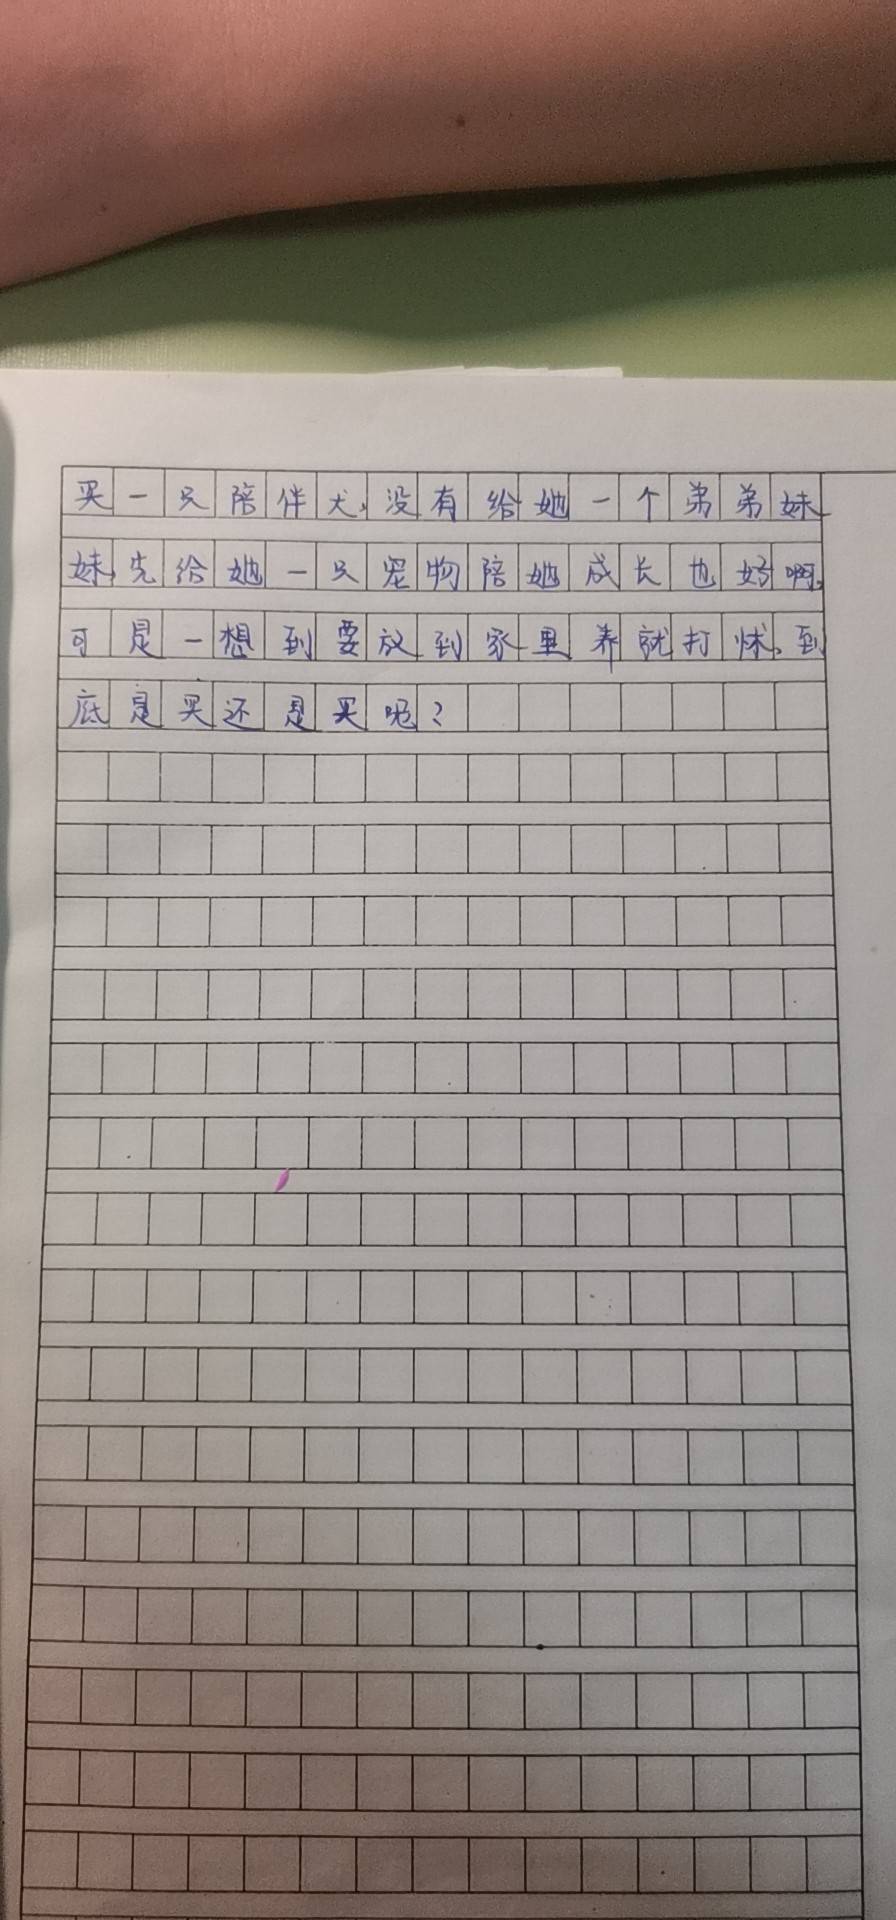 买一只陪伴犬,没有给她一个弟弟妹
妹,先给她一只宠物陪她成长也好啊,
可是一想到要放到家里养就打怵,到
底是买还是买呢?